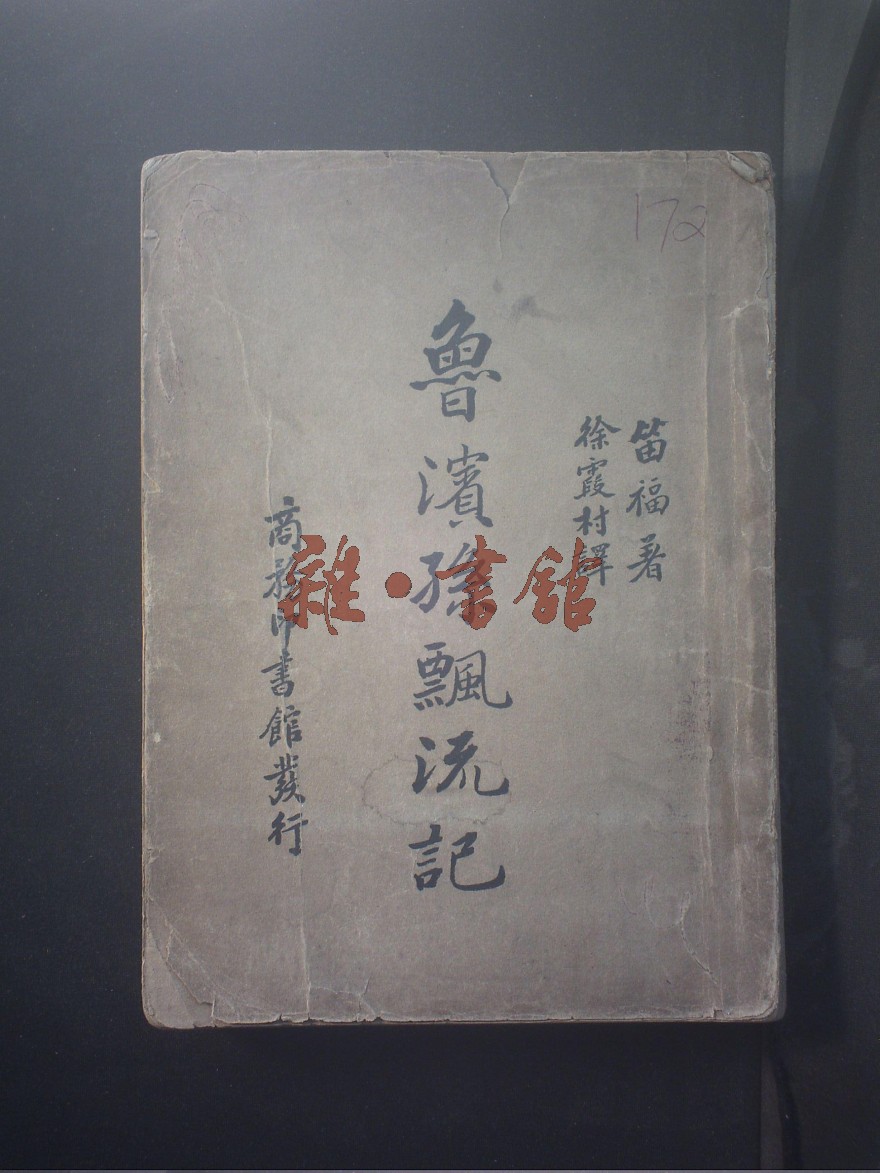 172
笛福著
徐霞村譯
魯濱孫飄流記
商務印書館發行
雜·書館